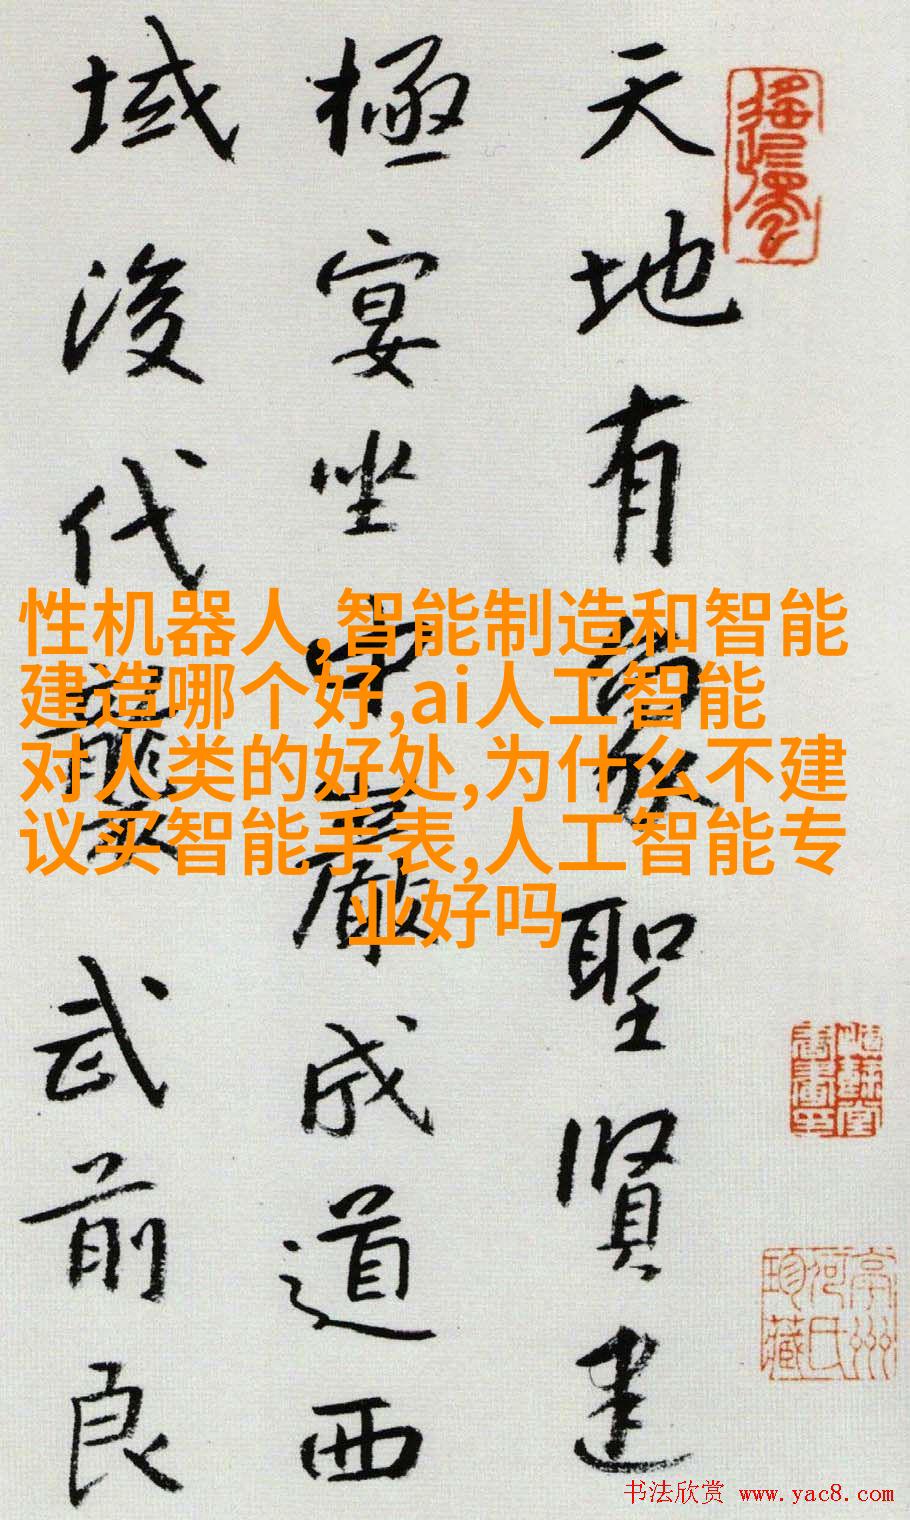 天地有象聖賢建
極宴坐中嚴成道西
域後代襲武前良
性机器人,智能制造和智能
建造哪个好,ai人工智能
对人类的好处,为什么不建
议买智能手表,人工智能专
业好吗
亭州
河氏
珍藏
书法欣赏 www.yac8.com